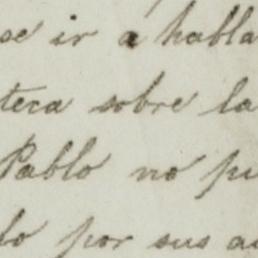 se ir a habla
tera sobre la
Pablo no pu
do por sus a